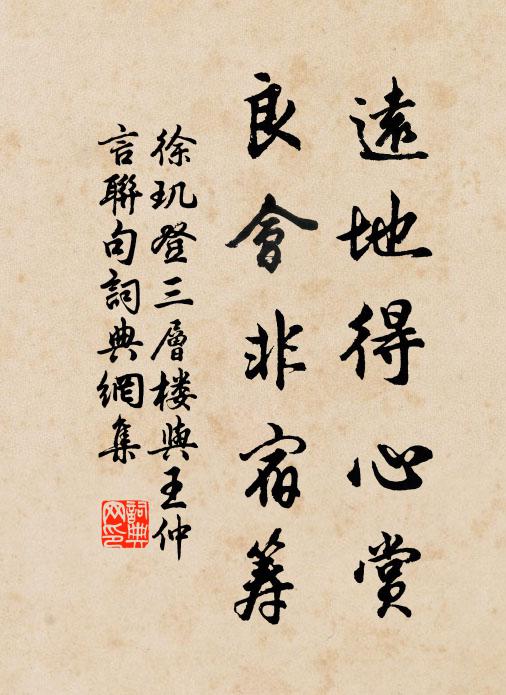 遠地得心賞
良會非宿筹
徐玑登三層楼與王仲
言聯句詞典網集
詞典
网印